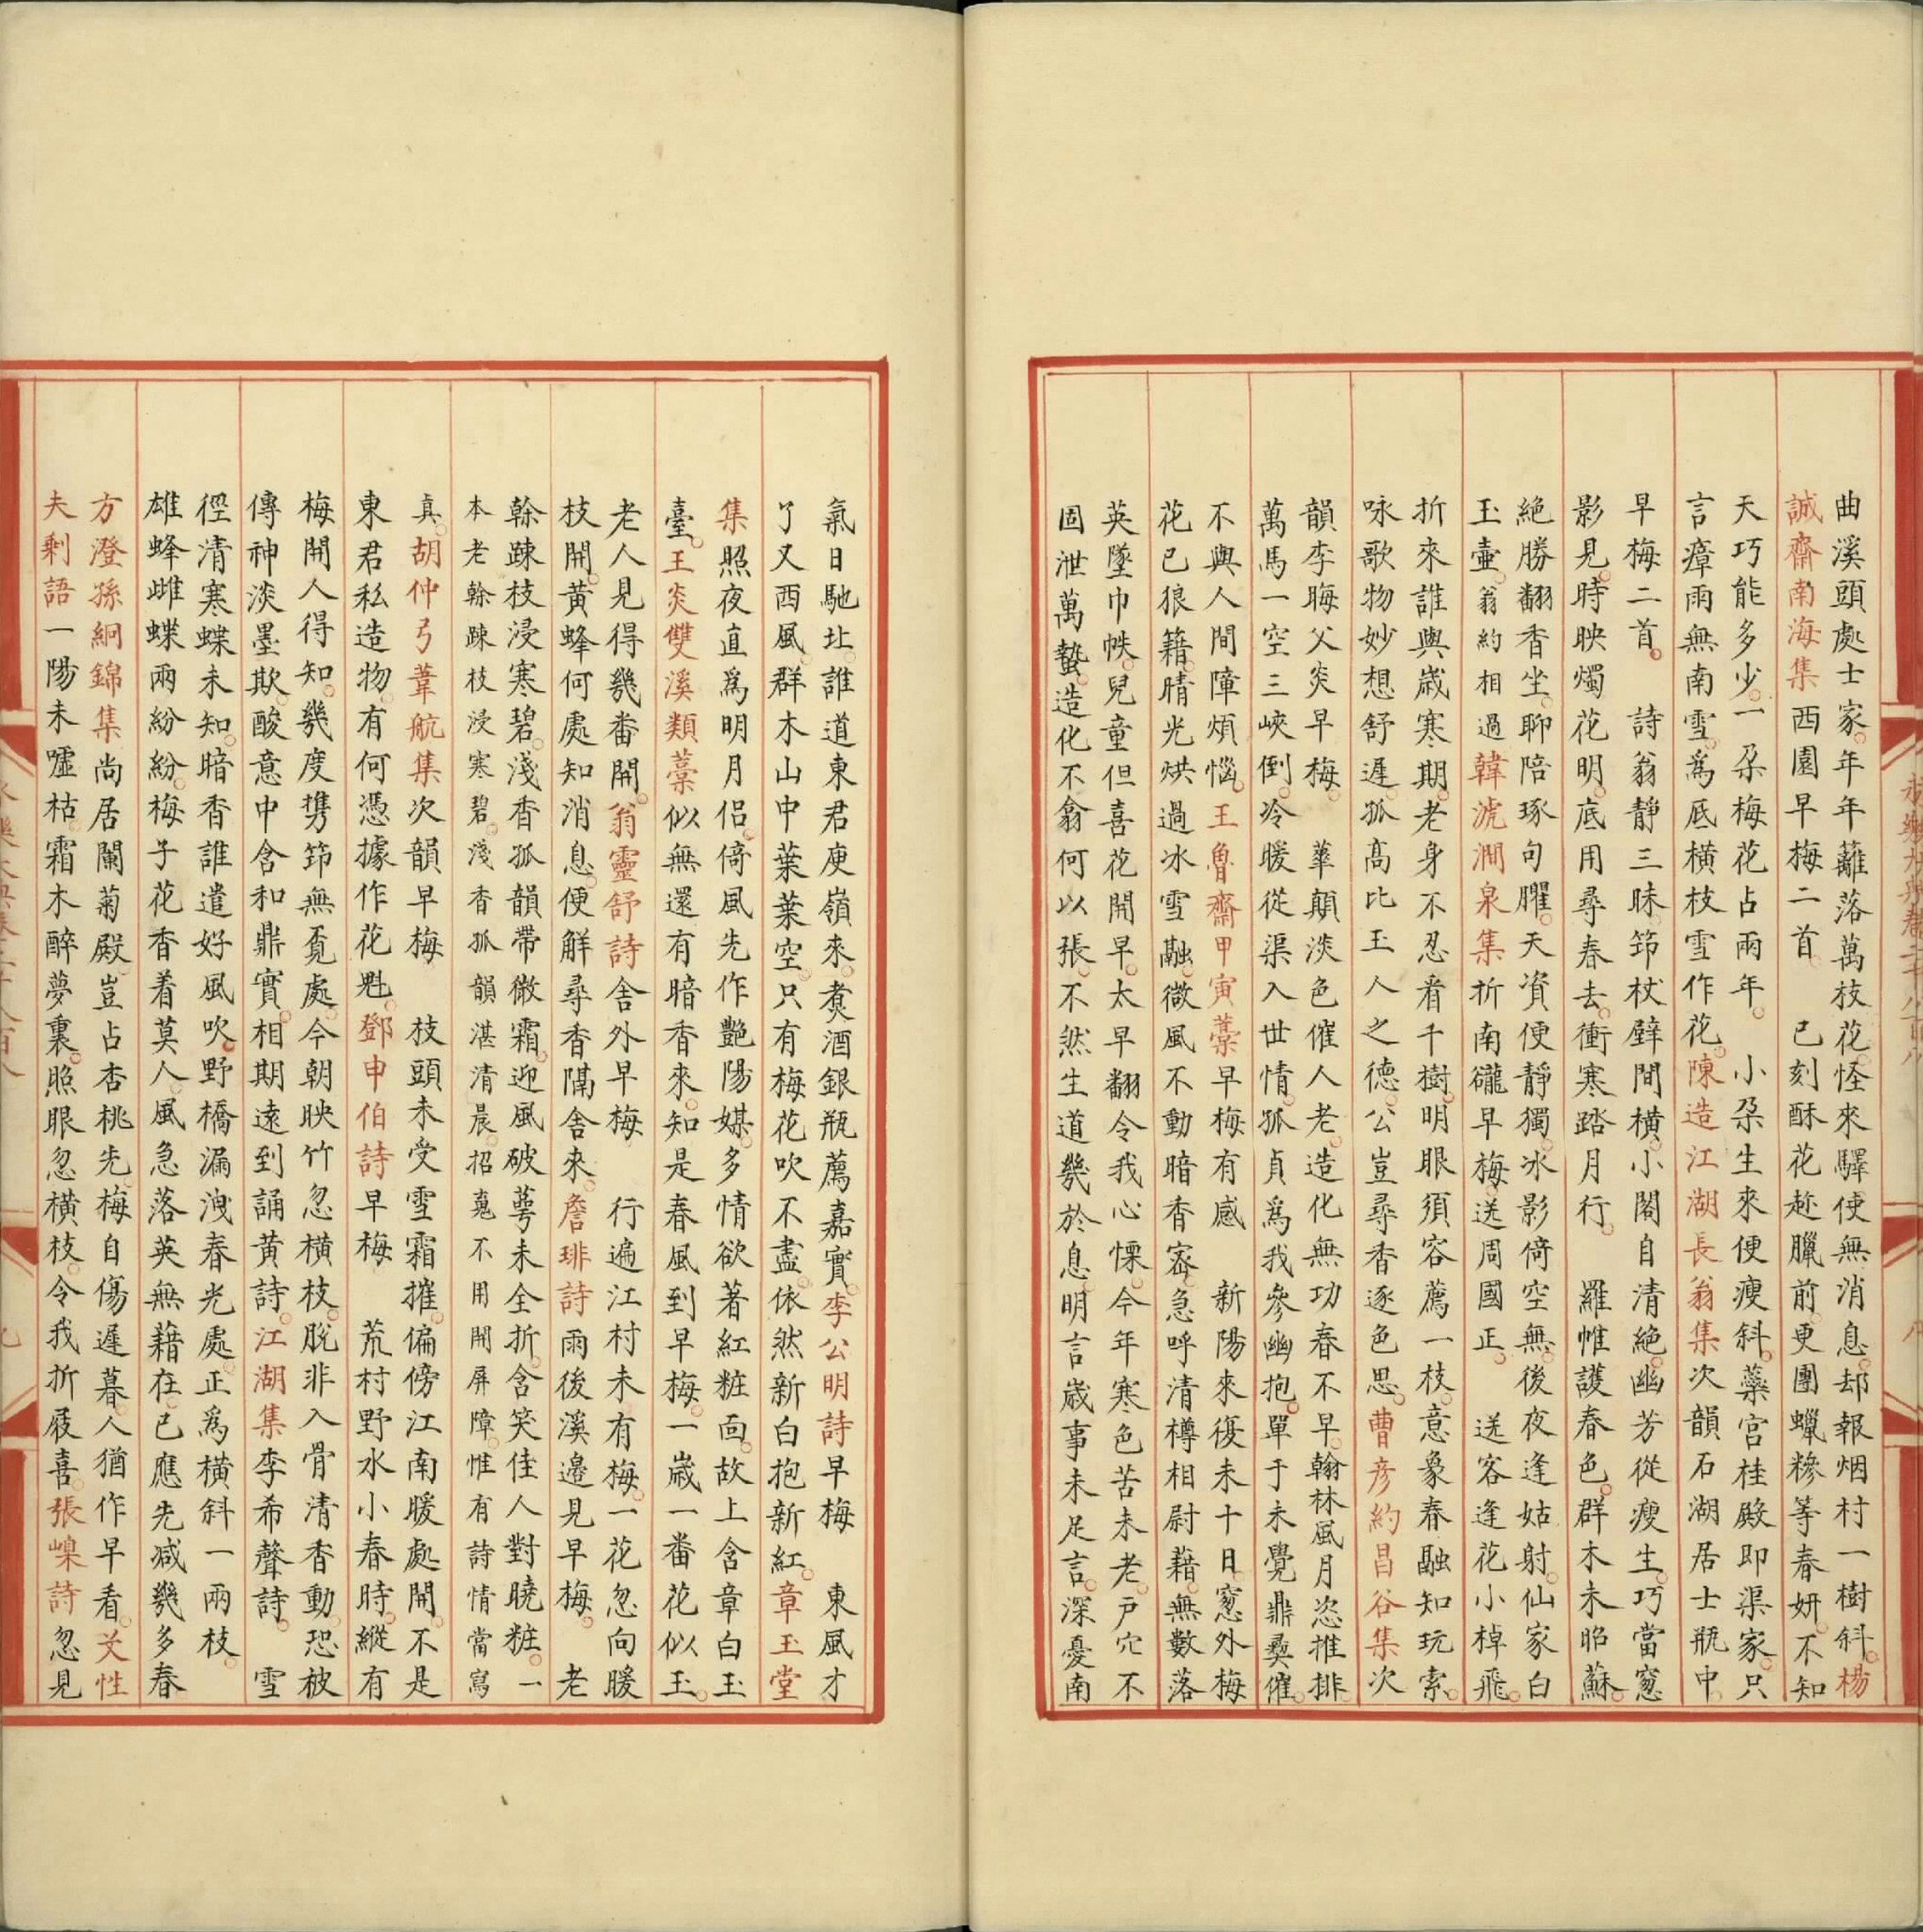 曲溪頭處士家年年籬落萬枝花怪來驛使無消息却報烟村一樹斜楊
誠齋南海集西園早梅二首 已刻酥花趂臘前更團蠟糝等春妍不知
天巧能多少一朶梅花占兩年 小朶生來便瘦斜蘂宮桂殿即渠家只
言瘴雨無南雪為底橫枝雪作花陳造江湖長翁集次韻石湖居士瓶中
早梅二首 詩翁靜三昧笻杖壁間橫小閣自清絶幽芳從瘦生巧當窓
影見時映燭花明底用尋春去衝寒踏月行 羅帷護春色群木未昭蘇
絶勝翻香坐聊陪琢句臞天資便靜獨冰影倚空無後夜逢姑射仙家白
玉壷翁約相過韓淲澗泉集折南礲早梅送周國正 送客逢花小棹飛
折來誰與歳寒期老身不忍看千樹明眼須容薦一枝意象春融知玩索
咏歌物妙想舒遲孤髙比玉人之德公豈尋香逐色思曹彦約昌谷集次
韻李晦父炎早梅 華顛淡色催人老造化無功春不早翰林風月恣推排
萬馬一空三峽倒冷暖從渠入世情孤貞為我參幽抱單于未覺鼎彛催
不與人間障煩惱王魯齋甲寅藁早梅有感 新陽來復未十日窓外梅
花已狼籍晴光烘過冰雪融微風不動暗香宻急呼清樽相尉藉無數落
英墜巾帙兒童但喜花開早太早翻令我心慄今年寒色苦未老戸穴不
固泄萬蟄造化不翕何以張不然生道幾於息明言歳事未足言深憂南
氣日馳北誰道東君庾嶺來煑酒銀瓶薦嘉實李公明詩早梅 東風才
了又西風群木山中葉葉空只有梅花吹不盡依然新白抱新紅章玉堂
集照夜直為明月侶倚風先作艷陽媒多情欲著紅粧面故上含章白玉
臺王炎雙溪類藁似無還有暗香來知是春風到早梅一嵗一番花似玉
老人見得幾畨開翁靈舒詩舍外早梅 行遍江村未有梅一花忽向暖
枝開黃蜂何處知消息便解尋香隔舍來詹琲詩雨後溪邉見早梅 老
榦踈枝浸寒碧淺香孤韻帶微霜迎風破萼未全折含笑佳人對曉粧一
本老榦踈枝浸寒碧淺香孤韻湛清晨招䰟不用開屏障惟有詩情當寫
真胡仲弓葦航集次韻早梅 枝頭未受雪霜摧偏傍江南暖處開不是
東君私造物有何憑據作花魁鄧申伯詩早梅 荒村野水小春時縱有
梅開人得知幾度携笻無覔處今朝映竹忽橫枝脱非入骨清香動恐被
傳神淡墨欺酸意中含和鼎實相期遠到誦黄詩江湖集李希聲詩 雪
徑清寒蝶未知暗香誰遣好風吹野橋漏洩春光處正為橫斜一兩枝
雄蜂雌蝶兩紛紛梅子花香着莫人風急落英無藉在已應先减幾多春
方澄孫絅錦集尚居闌菊殿豈占杏桃先梅自傷遲暮人猶作早看艾性
夫剩語一陽未嘘枯霜木醉夢裏照眼忽橫枝令我折屐喜張嵲詩忽見